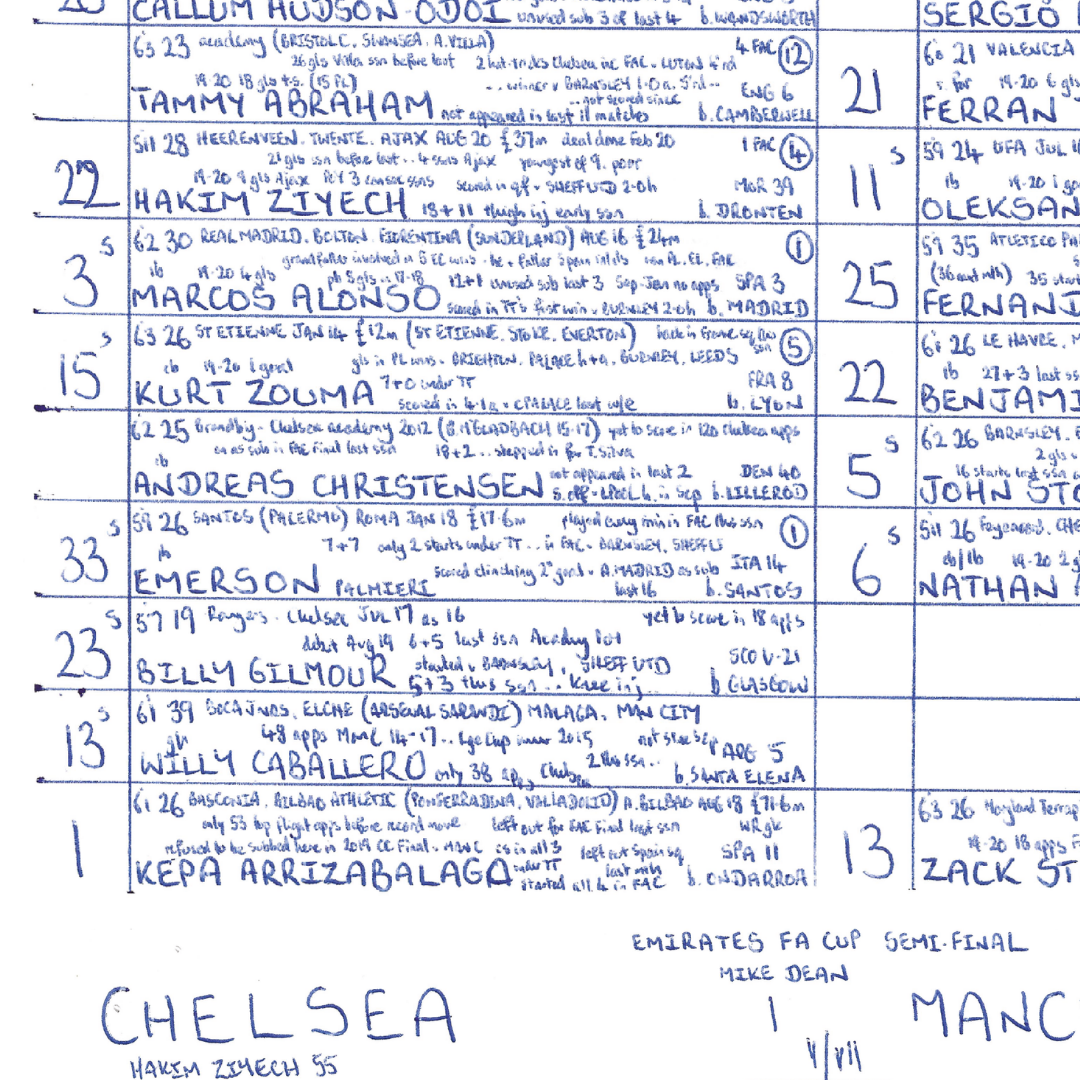 CALLUM HUDSON-ODOI unused sub 3 of last 4 b. WANDSWORTH
SERGIO
63 23 academy (BRISTOL C, SWANSEA, A.VILLA) 4 FAC 12
26 gls Villa ssn before last 2 hat-tricks Chelsea inc FAC v LUTON
19-20 18 gls (15 PL) winner v BARNSLEY 1-0 a. 5'rd ENG 6
TAMMY ABRAHAM not appeared in last 11 matches b. CAMBERWELL
21
60 21 VALENCIA
19-20 6 gls
FERRAN
22
511 28 HEERENVEEN, TWENTE, AJAX AUG 20 £37m deal done Feb 20 1 FAC 4
21 gls ssn before last .. 4 ssns Ajax youngest of 9. poor
19-20 9 gls Ajax POY 3 consec ssns scored in qf v SHEFF UTD 2-0 h MOR 39
HAKIM ZIYECH 18+11 thigh inj early ssn b. DRONTEN
11 s
59 24 UFA JUL
lb 19-20 1
OLEKSAN
3 s
62 30 REAL MADRID, BOLTON, FIORENTINA (SUNDERLAND) AUG 16 £24m 1
grandfather involved in 5 EC wins - he + father Spain intnls won PL, EL, FAC
lb 19-20 4 gls 8 gls 17-18 12+1 unused sub last 3 Sep-Jan no apps SPA 3
MARCOS ALONSO scored in TT's first win v BURNLEY 2-0 h b. MADRID
25
59 35 ATLETICO
35
FERNAN
15 s
63 26 ST ETIENNE JAN 14 £12m (ST ETIENNE, STOKE, EVERTON) back in France sq 5
cb 19-20 1 goal gls in PL wins - BRIGHTON, PALACE h+a, BURNLEY, LEEDS
KURT ZOUMA 7+0 under TT FRA 8
scored in 4-1 a v C PALACE last w/e b. LYON
22
61 26 LE HAVRE,
lb 27+3 last
BENJAMI
62 25 Brondby - Chelsea academy 2012 (B.M'GLADBACH 15-17) yet to score in 120 Chelsea apps
on as sub in FAC final last ssn 18+2 .. stepped in for T.Silva
cb not appeared in last 2 DEN 40
ANDREAS CHRISTENSEN s.off v LPOOL h. in Sep b. LILLEROD
5 s
62 26 BARNSLEY,
2 gls
16 starts last ssn
JOHN STO
33 s
59 26 SANTOS (PALERMO) ROMA JAN 18 £17.6m played every min in FAC this ssn 1
7+7 only 2 starts under TT .. in FAC - BARNSLEY, SHEFFU
lb scored clinching 2nd goal v A.MADRID as sub ITA 14
EMERSON PALMIERI last 16 b. SANTOS
6 s
511 26 Feyenoord, CHE
cb/lb 19-20 2
NATHAN
23 s
57 19 Rangers - Chelsea Jul 17 as 16 yet to score in 18 apps
debut Aug 19 6+5 last ssn Academy
BILLY GILMOUR started v BARNSLEY, SHEFF UTD SCO U-21
5+3 this ssn .. knee inj.. b GLASGOW
13 s
61 39 BOCA JNRS, ELCHE (ARSENAL SARANDI) MALAGA, MAN CITY
gk 48 apps ManC 14-17.. Lge Cup winner 2015 not since Sep ARG 5
WILLY CABALLERO only 38 apps Chelsea 2 this ssn.. b. SANTA ELENA
1
61 26 BASCONIA, BILBAO ATHLETIC (PONFERRADINA, VALLADOLID) A.BILBAO AUG 18 £71.6m
only 53 top flight apps before record move left out for FAC Final last ssn WR gk
refused to be subbed here in 2019 CC Final v MANC left out Spain sq SPA 11
KEPA ARRIZABALAGA under TT last mth
started all 4 in FAC b. ONDARROA
13
63 26 Maryland
19-20 18 apps
ZACK ST
EMIRATES FA CUP SEMI-FINAL
MIKE DEAN
CHELSEA 1 MANC
HAKIM ZIYECH 55 v/vii